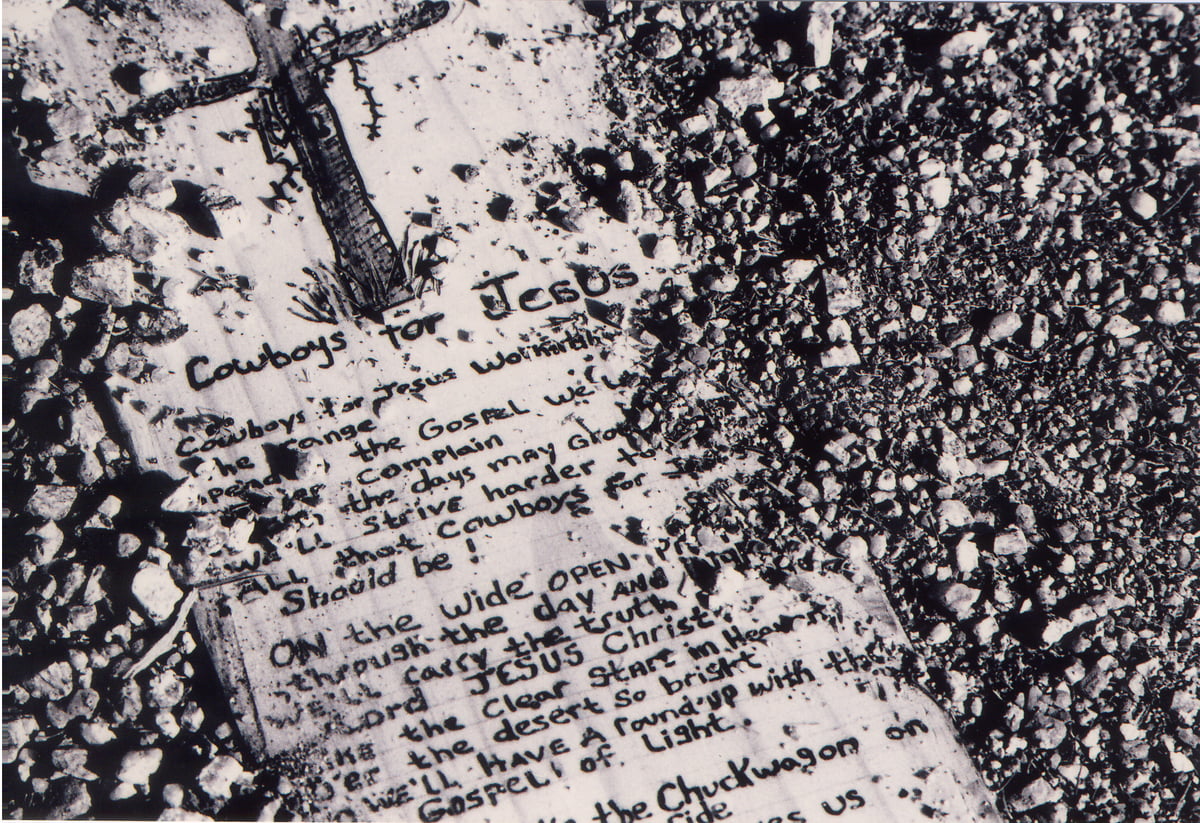 Cowboys for Jesus
Cowboys for Jesus
the range
the Gospel we'll
Complain
the days may
We'll strive harder to
ALL that Cowboys for
Should be!
ON the wide OPEN
through the day AND
We'll carry the truth
Lord JESUS Christ.
the clear STARS in
O'er the desert so bright
We'll HAVE A round-up with the
GOSPEL! of. Light.
the Chuckwagon on
us